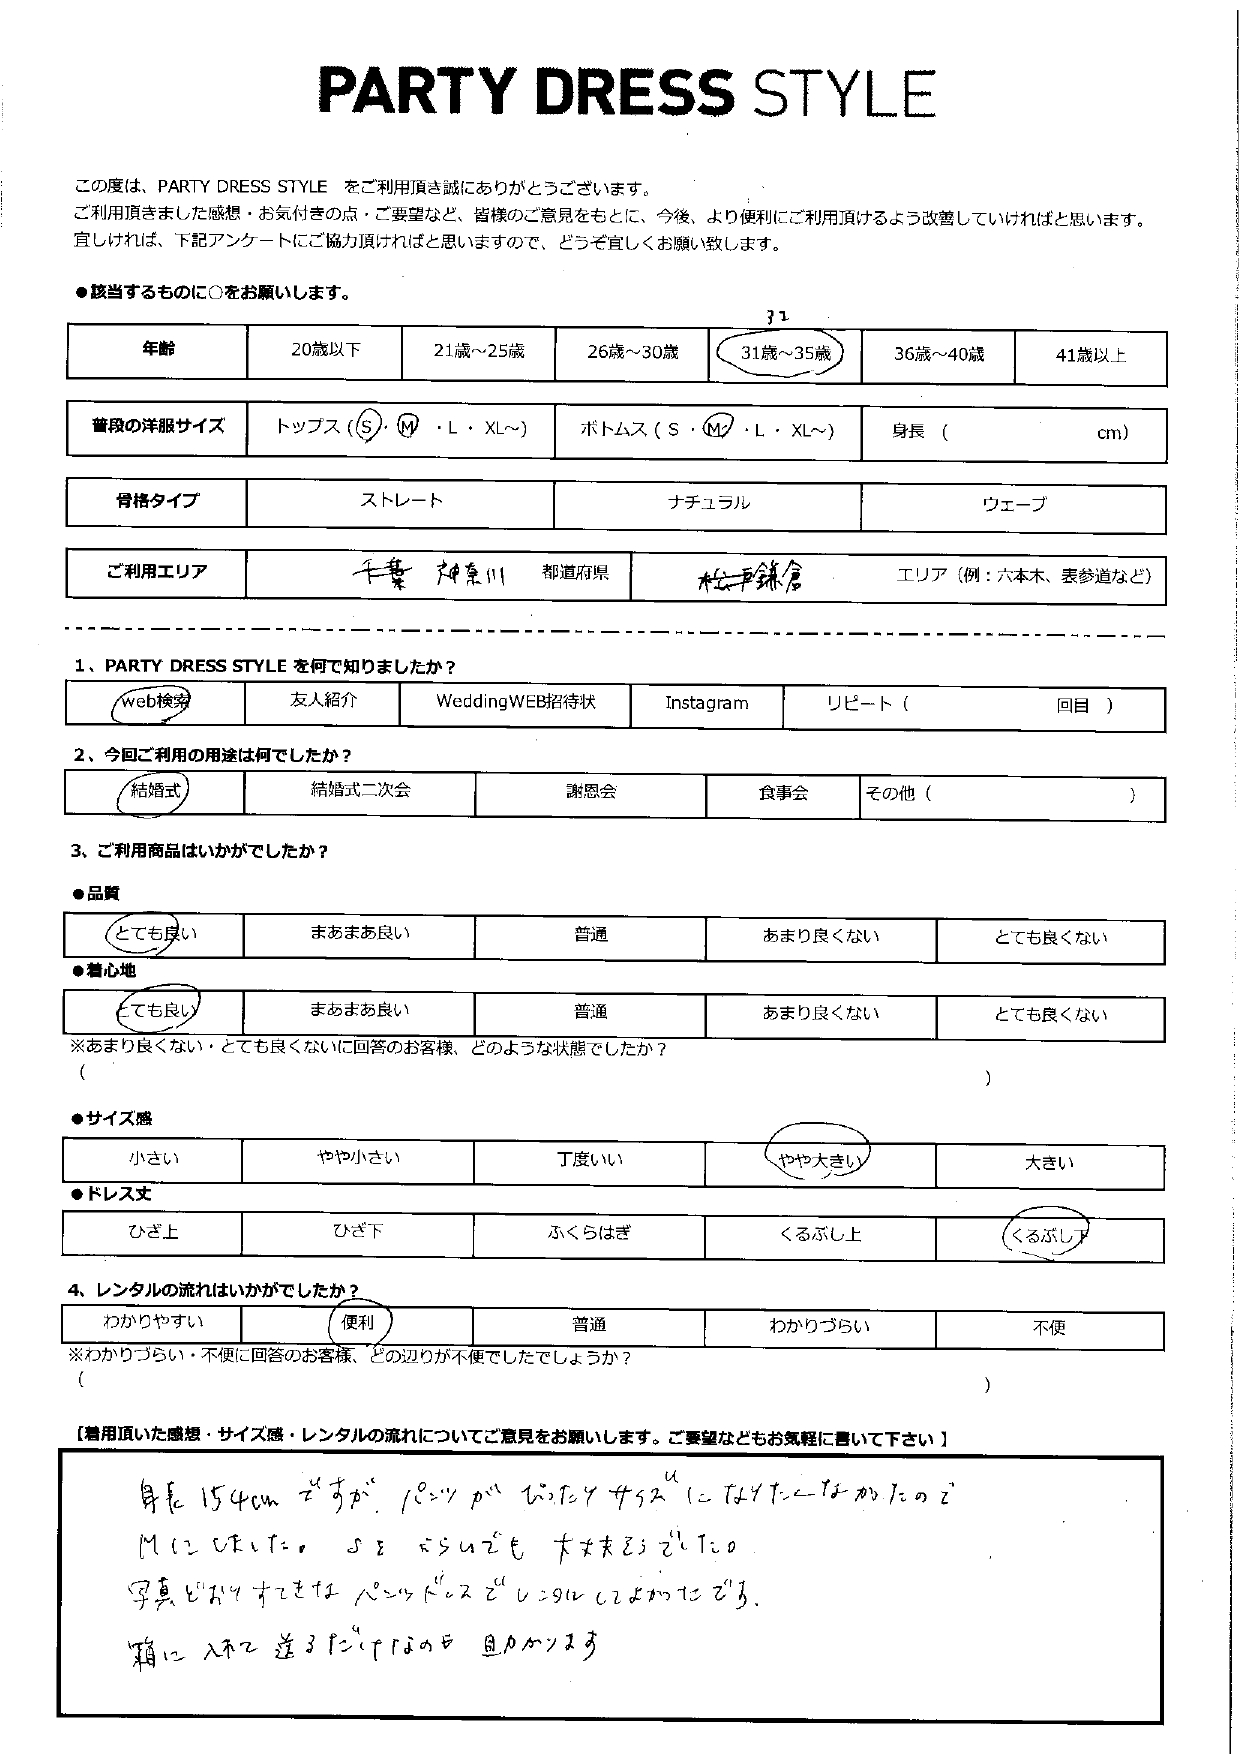 PARTY DRESS STYLE
この度は、PARTY DRESS STYLE をご利用頂き誠にありがとうございます。
ご利用頂きました感想・お気付きの点・ご要望など、皆様のご意見をもとに、今後、より便利にご利用頂けるよう改善していければと思います。
宜しければ、下記アンケートにご協力頂ければと思いますので、どうぞ宜しくお願い致します。
●該当するものに○をお願いします。
32
年齢 20歳以下 21歳～25歳 26歳～30歳 31歳～35歳 36歳～40歳 41歳以上
普段の洋服サイズ トップス (S・M ・L・ XL～) ボトムス ( S ・M・L ・ XL～) 身長 ( cm)
骨格タイプ ストレート ナチュラル ウェーブ
ご利用エリア 千葉 神奈川 都道府県 松戸鎌倉 エリア（例：六本木、表参道など）
1、PARTY DRESS STYLE を何で知りましたか？
web検索 友人紹介 WeddingWEB招待状 Instagram リピート（ 回目 ）
2、今回ご利用の用途は何でしたか？
結婚式 結婚式二次会 謝恩会 食事会 その他（ ）
3、ご利用商品はいかがでしたか？
●品質
とても良い まあまあ良い 普通 あまり良くない とても良くない
●着心地
とても良い まあまあ良い 普通 あまり良くない とても良くない
※あまり良くない・とても良くないに回答のお客様、どのような状態でしたか？
( )
●サイズ感
小さい やや小さい 丁度いい やや大きい 大きい
●ドレス丈
ひざ上 ひざ下 ふくらはぎ くるぶし上 くるぶし下
4、レンタルの流れはいかがでしたか？
わかりやすい 便利 普通 わかりづらい 不便
※わかりづらい・不便に回答のお客様、どの辺りが不便でしたでしょうか？
( )
【着用頂いた感想・サイズ感・レンタルの流れについてご意見をお願いします。ご要望などもお気軽に書いて下さい 】
身長154cmですが、パンツがぴったりサイズになりたくなかったので
Mにしました。Sぐらいでも大丈夫そうでした。
写真どおりすてきなパンツドレスでレンタルしてよかったです。
箱に入れて送るだけなのも助かります